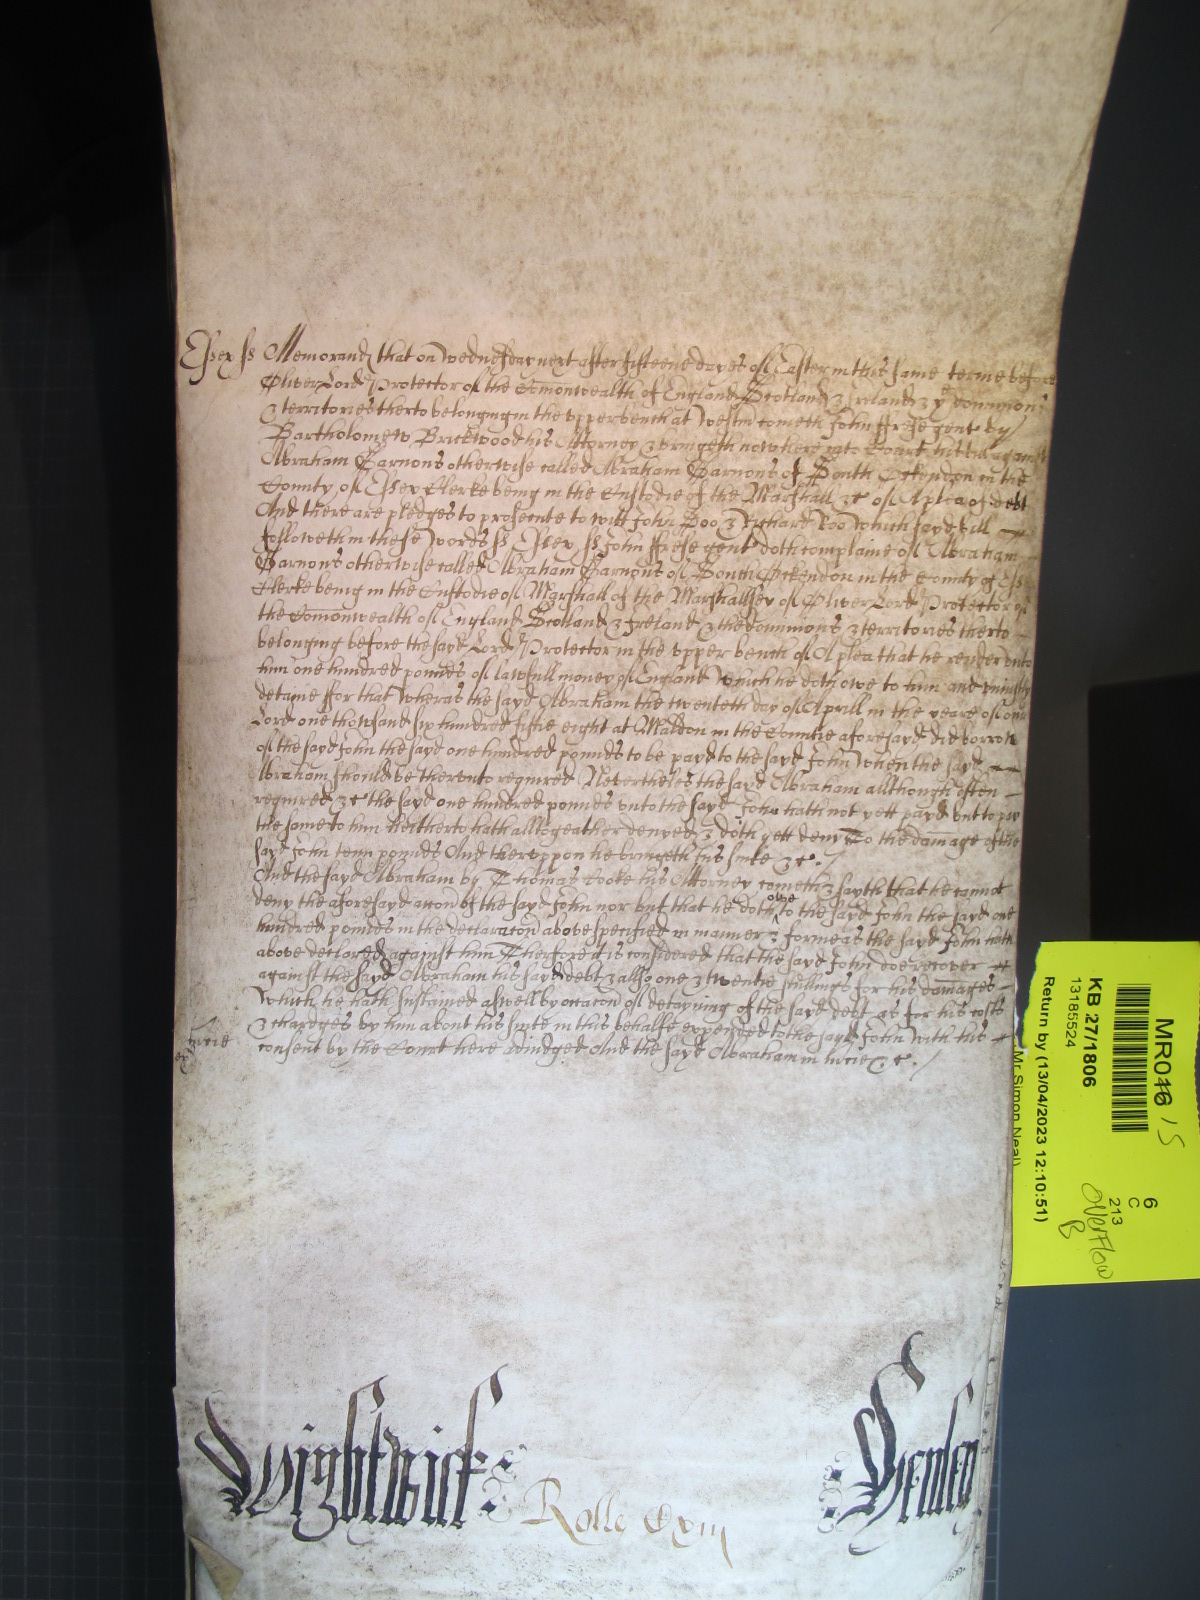 Essex ss Memorand that on Wednesday next after fifteene dayes of Easter in this same terme before
Oliver Lord Protector of the Comonwealth of England Scotland & Ireland & ye dominions
& territories therto belonging in the upper bench at Westm cometh John Frese gent by
Bartholomew Brickwood his Attorney & bringeth now here into Court his bill against
Abraham Garnons otherwise called Abraham Garnons of South Ockendon in the
County of Essex Clerke being in the Custodie of the Marshall &c of A plea of debt
And there are pledges to prosecute to witt John Doo & Richard Roo Which sayd bill
followeth in these words ss Essex ss John Frese gent doth complaine of Abraham
Garnons otherwise called Abraham Garnons of South Ockendon in the County of Essex
Clerke being in the Custodie of Marshall of the Marshallsey of Oliver Lord Protector of
the Comonwealth of England Scotland & Ireland & the dominions & territories therto
belonging before the sayd Lord Protector in the upper bench of A plea that he render unto
him one hundred pounds of lawfull money of England Which he doth owe to him and uniustly
detaine ffor that Wheras the sayd Abraham the twenteth day of Aprill in the yeare of our
Lord one thowsand six hundred fiftie eight at Maldon in the Countie aforesayd did borrow
of the sayd John the sayd one hundred pounds to be payd to the sayd John When the sayd
Abraham should be therunto required Nevertheles the sayd Abraham allthough often
required &c the sayd one hundred pounds unto the sayd John hath not yett payd but to pay
the same to him hitherto hath alltogeather denyed & doth yett deny To the damage of the
sayd John tenn pounds And theruppon he bringeth his suite &c.
And the sayd Abraham by Thomas Cooke his Attorney cometh & sayth that he cannot
deny the aforesayd accon of the sayd John nor but that he doth owe to the sayd John the sayd one
hundred pounds in the declaracon above specified in manner & forme as the sayd John hath
above declared against him Therfore it is considered that the sayd John doe recover
against the sayd Abraham his sayd debt & allso one & twentie shillings for his damages
Which he hath sustained aswell by occacon of detayning of the sayd debt as for his costs
& chardges by him about his suite in this behalfe expended to the sayd John With his
consent by the Court here adiudged And the sayd Abraham in mcie &c.
mcie
Wightwick
Rolle Cxiij
Henley
MR016 15
KB 27/1806
13185524
Return by (13/04/2023 12:10:51)
Mr Simon Neal)
6
C
213
Overflow
B